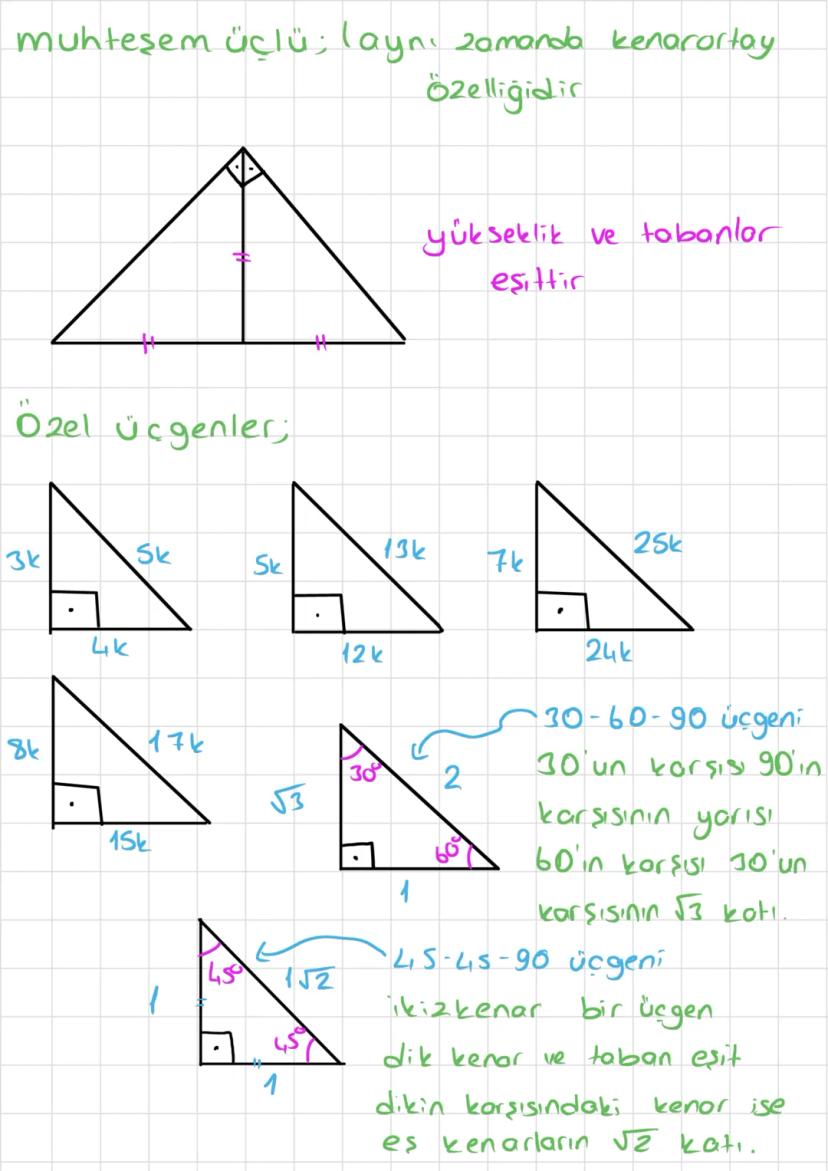 muhteşem üçlü; (aynı zamanda kenarortay
özelliğidir
yükseklik ve tabanlar
eşittir
Özel üçgenler;
3k 5k
4k
5k 13k
12k
7k 25k
24k
8k 17k
15k
30° 2
√3 60°
1
30-60-90 üçgeni
30'un karşısı 90'ın
karşısının yarısı
60'ın karşısı 30'un
karşısının √3 katı.
45° 1√2
1 45°
1
45-45-90 üçgeni
ikizkenar bir üçgen
dik kenar ve taban eşit
dikin karşısındaki kenar ise
eş kenarların √2 katı.